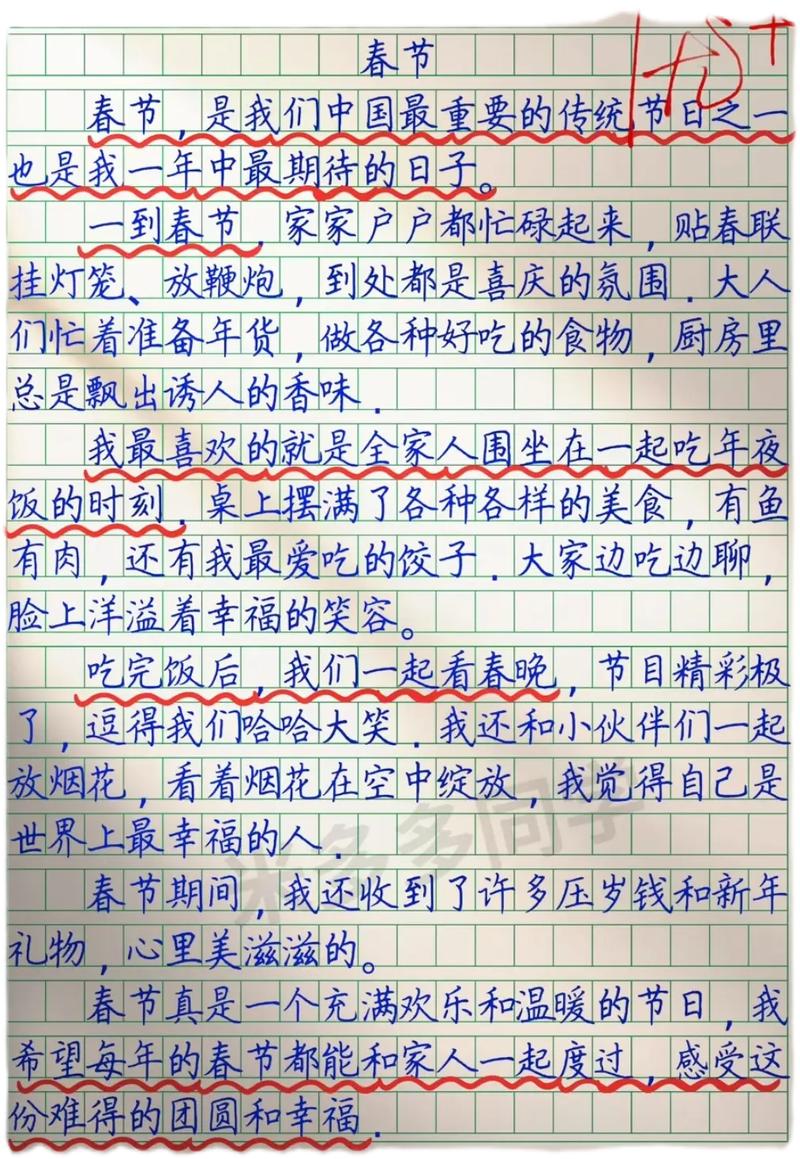 优+
春节
春节，是我们中国最重要的传统节日之一
也是我一年中最期待的日子。
一到春节，家家户户都忙碌起来，贴春联
挂灯笼、放鞭炮，到处都是喜庆的氛围．大人
们忙着准备年货，做各种好吃的食物，厨房里
总是飘出诱人的香味．
我最喜欢的就是全家人围坐在一起吃年夜
饭的时刻．桌上摆满了各种各样的美食，有鱼
有肉，还有我最爱吃的饺子．大家边吃边聊，
脸上洋溢着幸福的笑容。
吃完饭后，我们一起看春晚，节目精彩极
了，逗得我们哈哈大笑．我还和小伙伴们一起
放烟花，看着烟花在空中绽放，我觉得自己是
世界上最幸福的人．
春节期间，我还收到了许多压岁钱和新年
礼物，心里美滋滋的。
春节真是一个充满欢乐和温暖的节日，我
希望每年的春节都能和家人一起度过，感受这
份难得的团圆和幸福．
米多多同学